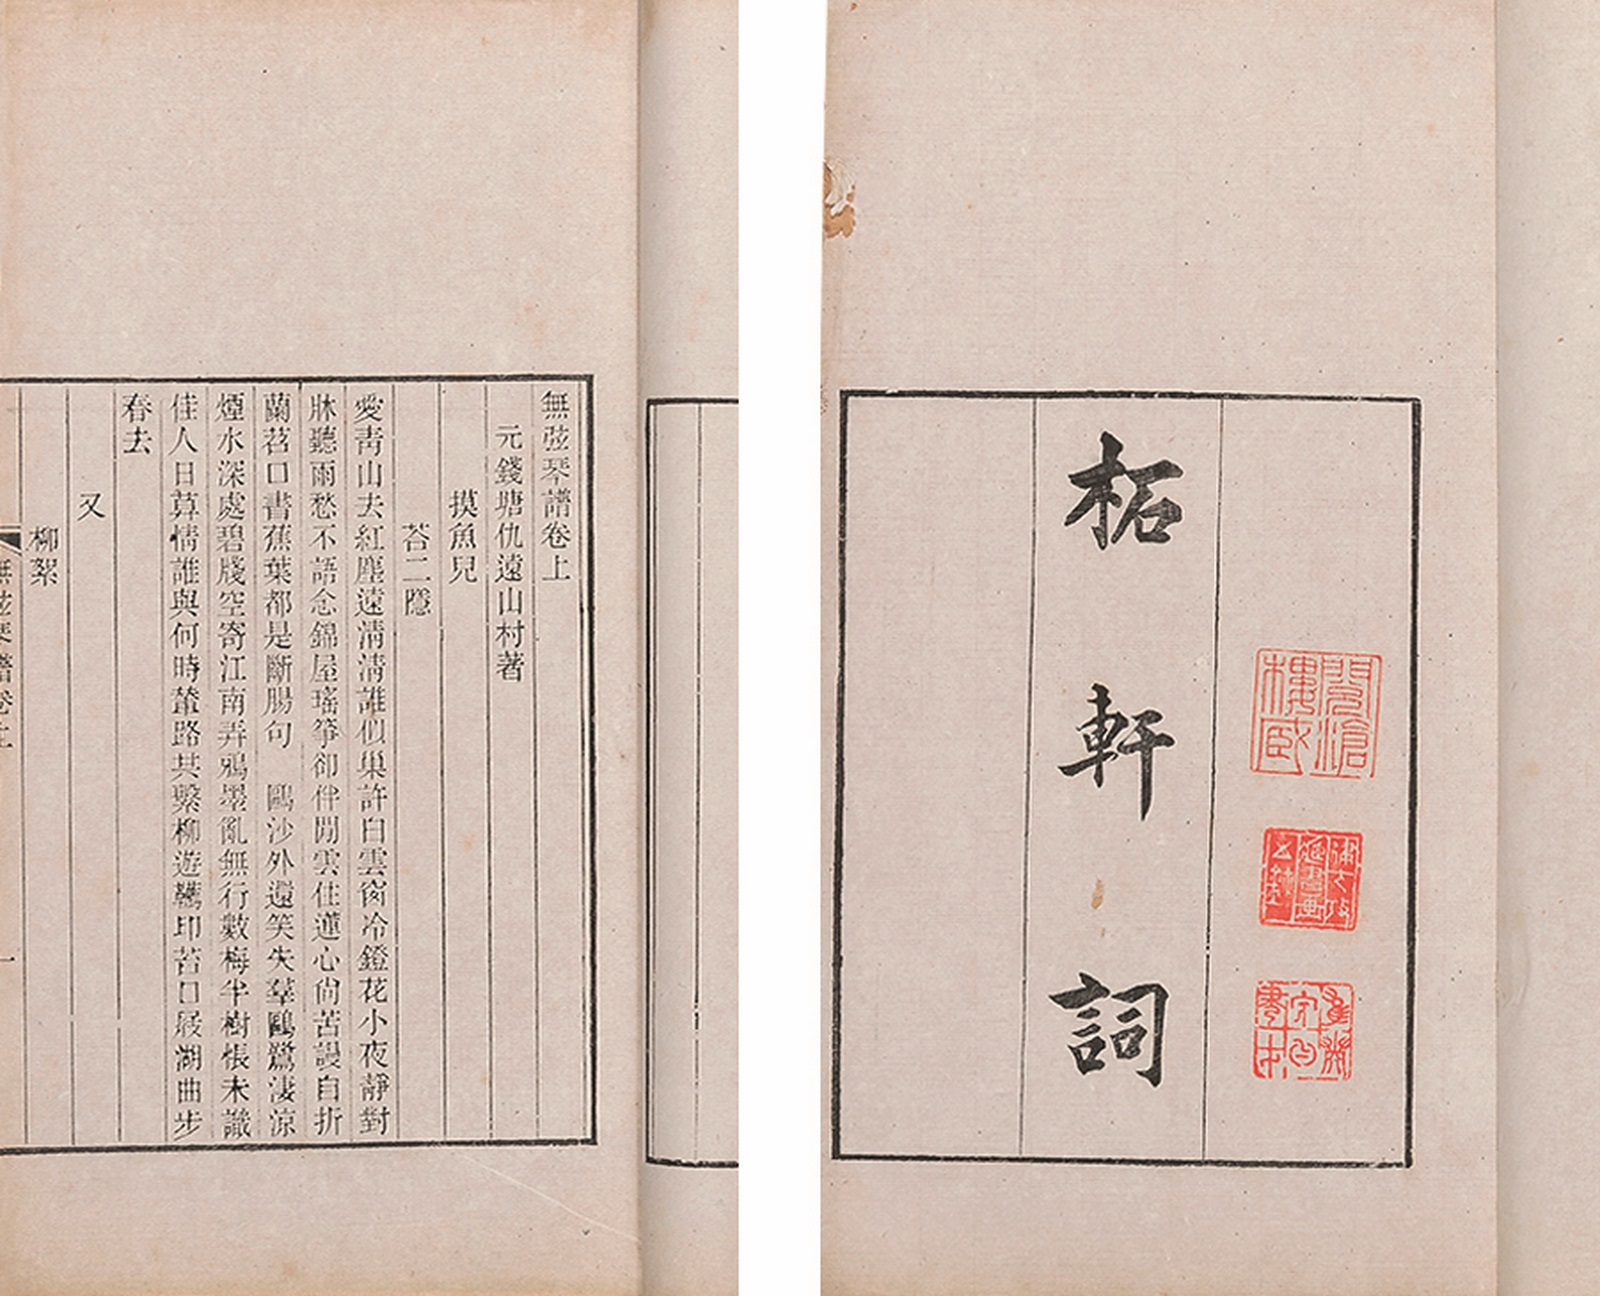 無弦琴譜卷上
元錢塘仇遠山村著
摸魚兒
荅二隱
愛青山去紅塵遠清清誰似巢許白雲窗冷鐙花小夜靜對
牀聽雨愁不語念錦屋瑤箏卻伴閒雲住蓮心尚苦謾自折
蘭苕口書蕉葉都是斷腸句　鷗沙外還笑失羣鷗鷺淒涼
煙水深處碧牋空寄江南弄鴉墨亂無行數梅半樹悵未識
佳人日算情誰與何時輦路共繫柳遊韉印苔口屐湖曲步
春去
又
柳絮
無弦琴譜卷上 一
柘軒詞